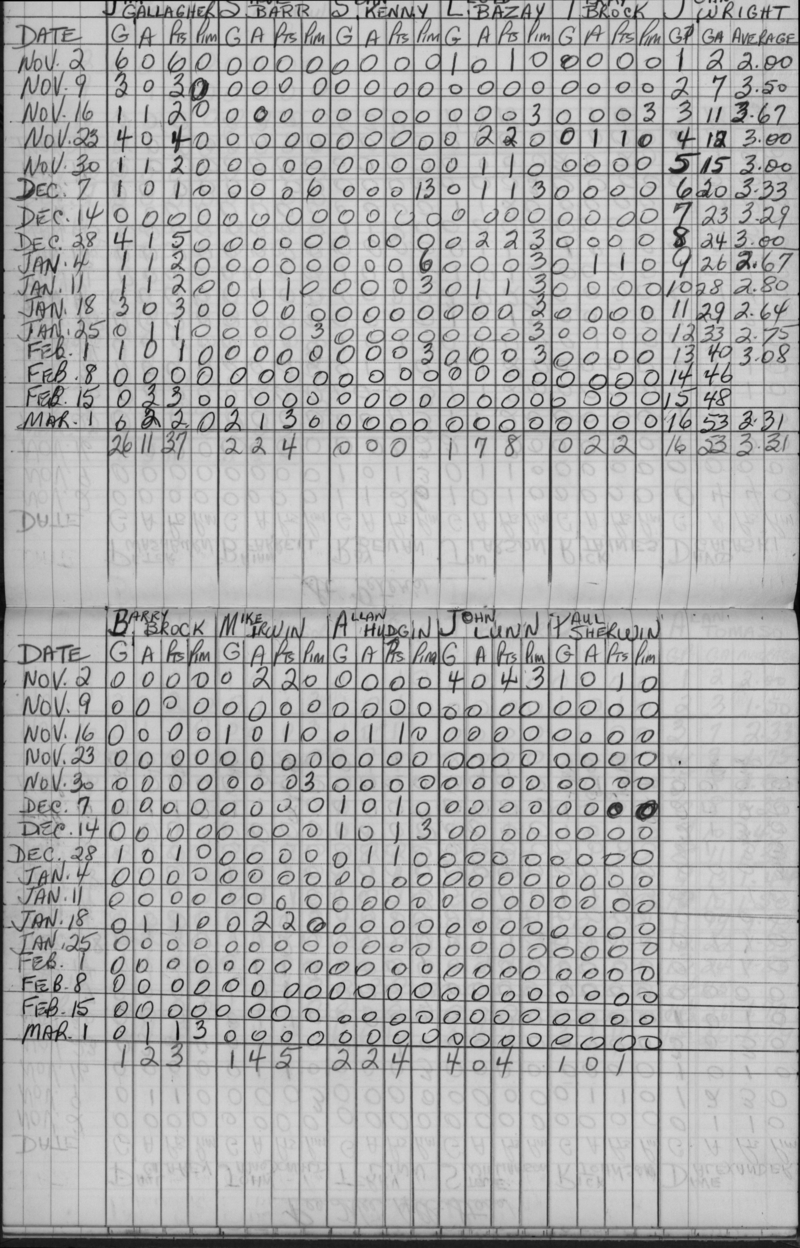 J GALLAGHER S BARR S KENNY L BAZAY T BROCK J WRIGHT
DATE G A Pts Pim G A Pts Pim G A Pts Pim G A Pts Pim G A Pts Pim GP GA AVERAGE
NOV. 2 6 0 6 0 0 0 0 0 0 0 0 0 1 0 1 0 0 0 0 0 1 2 2.00
NOV. 9 3 0 3 0 0 0 0 0 0 0 0 0 0 0 0 0 0 0 0 0 2 7 3.50
NOV. 16 1 1 2 0 0 0 0 0 0 0 0 0 0 0 0 3 0 0 0 3 3 11 3.67
NOV. 23 4 0 4 0 0 0 0 0 0 0 0 0 0 2 2 0 0 1 1 0 4 12 3.00
NOV. 30 1 1 2 0 0 0 0 0 0 0 0 0 0 1 1 0 0 0 0 0 5 15 3.00
DEC. 7 1 0 1 0 0 0 0 6 0 0 0 13 0 1 1 3 0 0 0 0 6 20 3.33
DEC. 14 0 0 0 0 0 0 0 0 0 0 0 0 0 0 0 0 0 0 0 0 7 23 3.29
DEC. 28 4 1 5 0 0 0 0 0 0 0 0 0 0 2 2 3 0 0 0 0 8 24 3.00
JAN. 4 1 1 2 0 0 0 0 0 0 0 0 6 0 0 0 3 0 1 1 0 9 26 2.67
JAN. 11 1 1 2 0 0 1 1 0 0 0 0 3 0 1 1 3 0 0 0 0 10 28 2.80
JAN. 18 3 0 3 0 0 0 0 0 0 0 0 0 0 0 0 3 0 0 0 0 11 29 2.64
JAN. 25 0 1 1 0 0 0 0 3 0 0 0 0 0 0 0 3 0 0 0 0 12 33 2.75
FEB. 1 1 0 1 0 0 0 0 0 0 0 0 3 0 0 0 3 0 0 0 0 13 40 3.08
FEB. 8 0 0 0 0 0 0 0 0 0 0 0 0 0 0 0 0 0 0 0 0 14 46
FEB. 15 0 3 3 0 0 0 0 0 0 0 0 0 0 0 0 0 0 0 0 0 15 48
MAR. 1 0 2 2 0 2 1 3 0 0 0 0 0 0 0 0 0 0 0 0 0 16 53 3.31
26 11 37 2 2 4 0 0 0 1 7 8 0 2 2 16 53 3.31
BARRY BROCK MIKE IRWIN ALLAN HUDGIN JOHN LUNN PAUL SHERWIN
DATE G A Pts Pim G A Pts Pim G A Pts Pim G A Pts Pim G A Pts Pim
NOV. 2 0 0 0 0 0 2 2 0 0 0 0 0 4 0 4 3 1 0 1 0
NOV. 9 0 0 0 0 0 0 0 0 0 0 0 0 0 0 0 0 0 0 0 0
NOV. 16 0 0 0 0 1 0 1 0 0 1 1 0 0 0 0 0 0 0 0 0
NOV. 23 0 0 0 0 0 0 0 0 0 0 0 0 0 0 0 0 0 0 0 0
NOV. 30 0 0 0 0 0 0 0 3 0 0 0 0 0 0 0 0 0 0 0 0
DEC. 7 0 0 0 0 0 0 0 0 1 0 1 0 0 0 0 0 0 0 0 0
DEC. 14 0 0 0 0 0 0 0 0 1 0 1 3 0 0 0 0 0 0 0 0
DEC. 28 1 0 1 0 0 0 0 0 0 1 1 0 0 0 0 0 0 0 0 0
JAN. 4 0 0 0 0 0 0 0 0 0 0 0 0 0 0 0 0 0 0 0 0
JAN. 11 0 0 0 0 0 0 0 0 0 0 0 0 0 0 0 0 0 0 0 0
JAN. 18 0 1 1 0 0 2 2 0 0 0 0 0 0 0 0 0 0 0 0 0
JAN. 25 0 0 0 0 0 0 0 0 0 0 0 0 0 0 0 0 0 0 0 0
FEB. 1 0 0 0 0 0 0 0 0 0 0 0 0 0 0 0 0 0 0 0 0
FEB. 8 0 0 0 0 0 0 0 0 0 0 0 0 0 0 0 0 0 0 0 0
FEB. 15 0 0 0 0 0 0 0 0 0 0 0 0 0 0 0 0 0 0 0 0
MAR. 1 0 1 1 3 0 0 0 0 0 0 0 0 0 0 0 0 0 0 0 0
1 2 3 1 4 5 2 2 4 4 0 4 1 0 1